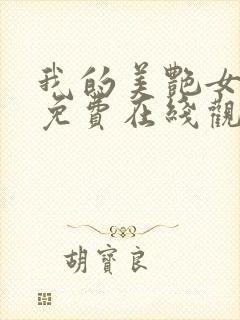 我的美艷女
免費在綫觀
胡寶良